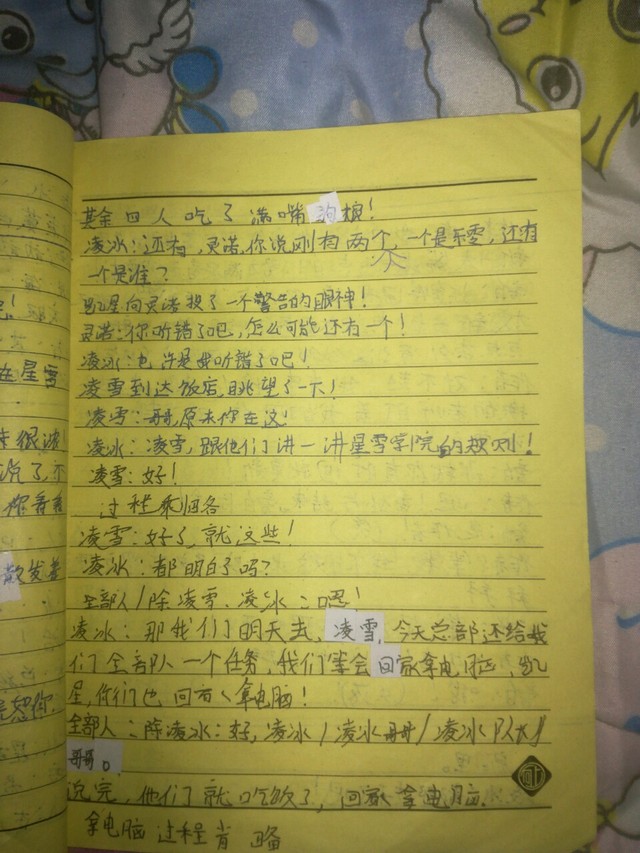 其余四人吃了满嘴狗粮!
凌冰:还有,灵诺,你说刚有两个,一个是乐雯,还有
一个是谁?
凯星向灵诺投了一个警告的眼神!
灵诺:你听错了吧,怎么可能还有一个!
凌冰:也许是我听错了吧!
凌雪到达饭店,眺望了一下!
凌雪:哥,原来你在这!
凌冰:凌雪,跟他们讲一讲星雪学院的规则!
凌雪:好!
过程乘归各
凌雪:好了,就这些!
凌冰:都明白了吗?
全部人/除凌雪、凌冰:嗯!
凌冰:那我们明天去、凌雪,今天总部还给我
们全部队一个任务,我们等会回家拿电脑,凯
星,你们也回家拿电脑!
全部人:除凌冰:好,凌冰/凌冰哥哥/凌冰队长/
哥哥。
说完,他们就吃饭了,回家拿电脑.
拿电脑过程省略
在星雪
很
说了,不
你看看
欺发
是恕你.